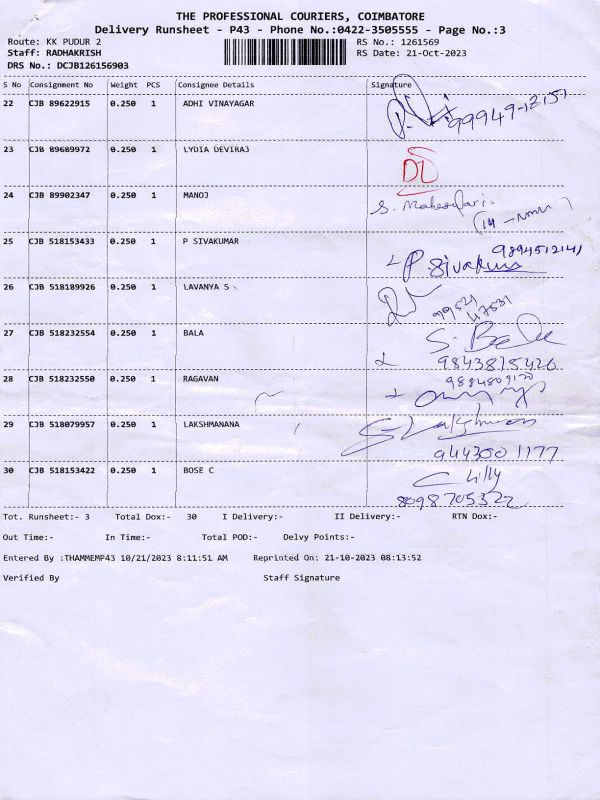 THE PROFESSIONAL COURIERS, COIMBATORE
Delivery Runsheet - P43 - Phone No.:0422-3505555 - Page No.:3
Route: KK PUDUR 2 RS No.: 1261569
Staff: RADHAKRISH RS Date: 21-Oct-2023
DRS No.: DCJB126156903
S No Consignment No Weight PCS Consignee Details Signature
22 CJB 89622915 0.250 1 ADHI VINAYAGAR
99949-12151
23 CJB 89689972 0.250 1 LYDIA DEVIRAJ
24 CJB 89902347 0.250 1 MANOJ S. Maheswari.
25 CJB 518153433 0.250 1 P SIVAKUMAR 9894512141
P. Sivakumar
26 CJB 518189926 0.250 1 LAVANYA S
99521
47531
27 CJB 518232554 0.250 1 BALA S. Bala
9843815426
28 CJB 518232550 0.250 1 RAGAVAN
29 CJB 518079957 0.250 1 LAKSHMANANA S Lakshmanan
9443001177
30 CJB 518153422 0.250 1 BOSE C C Lilly
8098705322
Tot. Runsheet:- 3 Total Dox:- 30 I Delivery:- II Delivery:- RTN Dox:-
Out Time:- In Time:- Total POD:- Delvy Points:-
Entered By :THAMMEMP43 10/21/2023 8:11:51 AM Reprinted On: 21-10-2023 08:13:52
Verified By Staff Signature